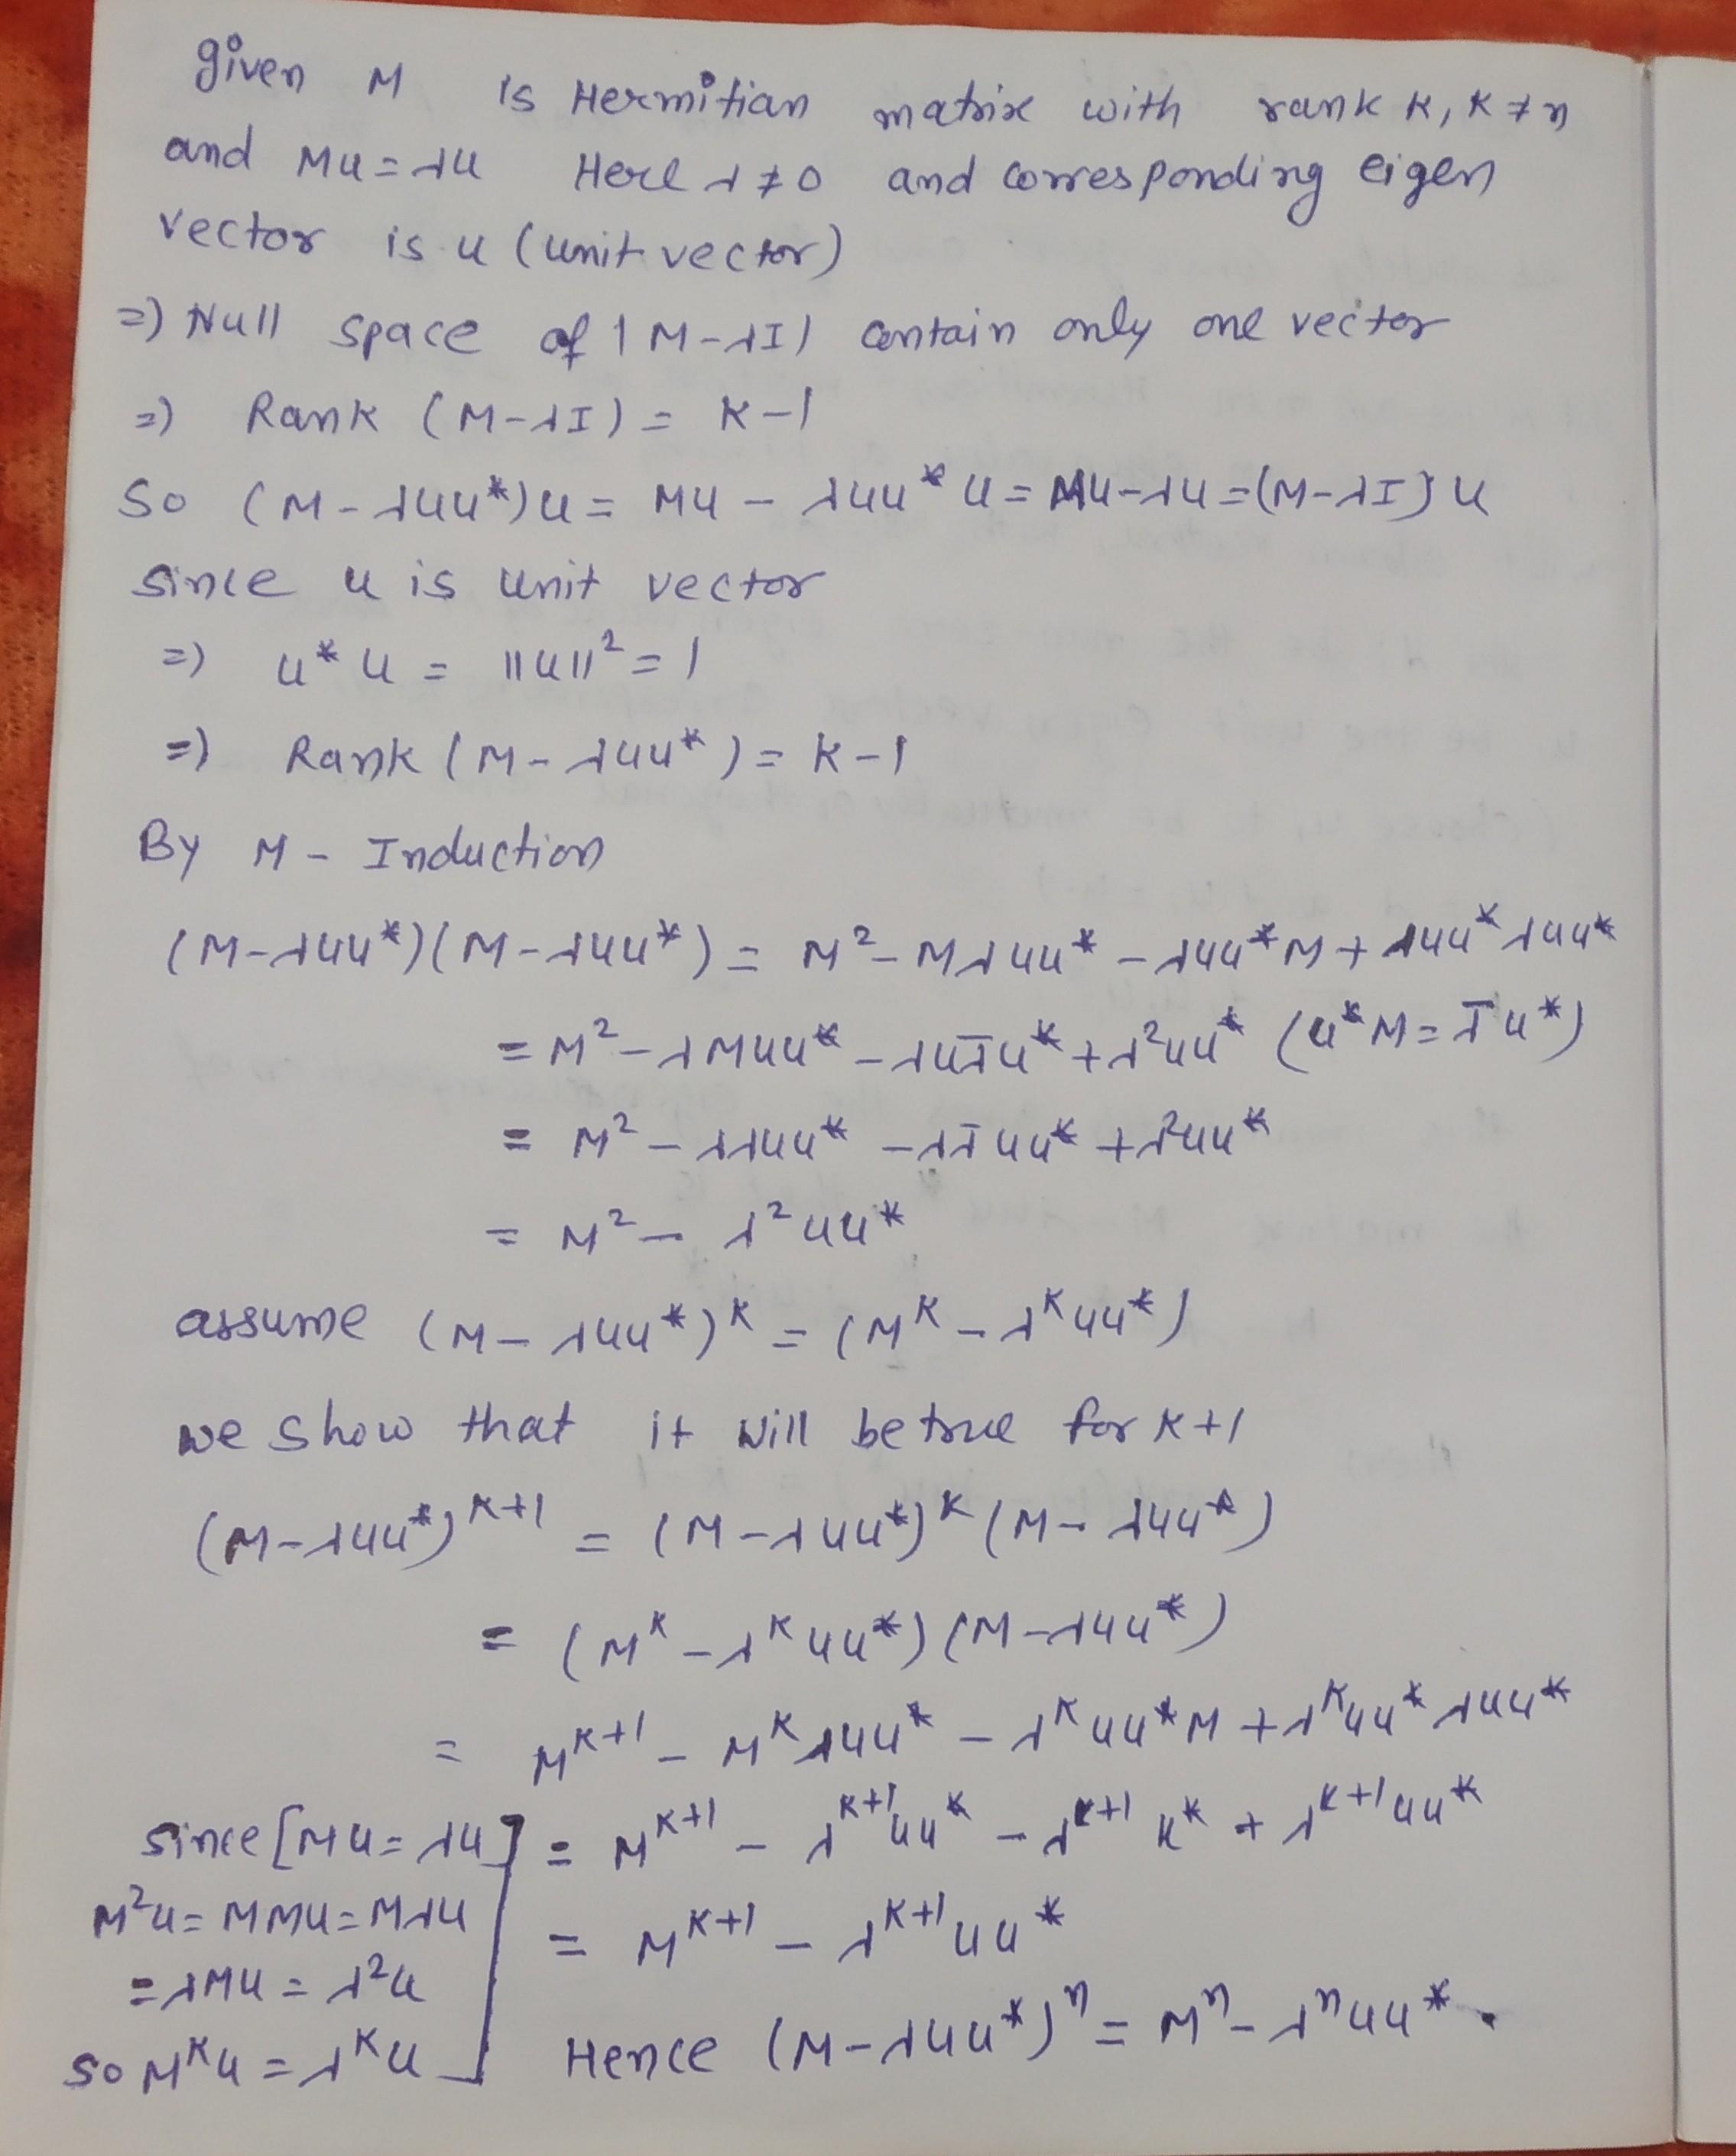 given M is Hermitian matrix with rank K, K ≠ n
and Mu = λu Here λ ≠ 0 and corresponding eigen
vector is u (unit vector)
=) Null space of |M-λI| contain only one vector
=) Rank (M-λI) = K-1
So (M-λuu*)u = Mu - λuu*u = Mu-λu = (M-λI)u
since u is unit vector
=) u*u = ||u||² = 1
=) Rank (M-λuu*) = K-1
By M-Induction
(M-λuu*)(M-λuu*) = M² - Mλuu* - λuu*M + λuu*λuu*
= M² - λMuu* - λuλ̄u* + λ²uu* (u*M = λ̄u*)
= M² - λλuu* - λλ̄uu* + λ²uu*
= M² - λ²uu*
assume (M-λuu*)^K = (M^K - λ^K uu*)
we show that it will be true for K+1
(M-λuu*)^K+1 = (M-λuu*)^K (M-λuu*)
= (M^K - λ^K uu*)(M-λuu*)
= M^K+1 - M^K λuu* - λ^K uu*M + λ^K uu*λuu*
since [Mu = λu] = M^K+1 - λ^K+1 uu* - λ^K+1 u* + λ^K+1 uu*
M²u = MMu = Mλu
= M^K+1 - λ^K+1 uu*
= λMu = λ²u
so M^K u = λ^K u
Hence (M-λuu*)^n = M^n - λ^n uu*.